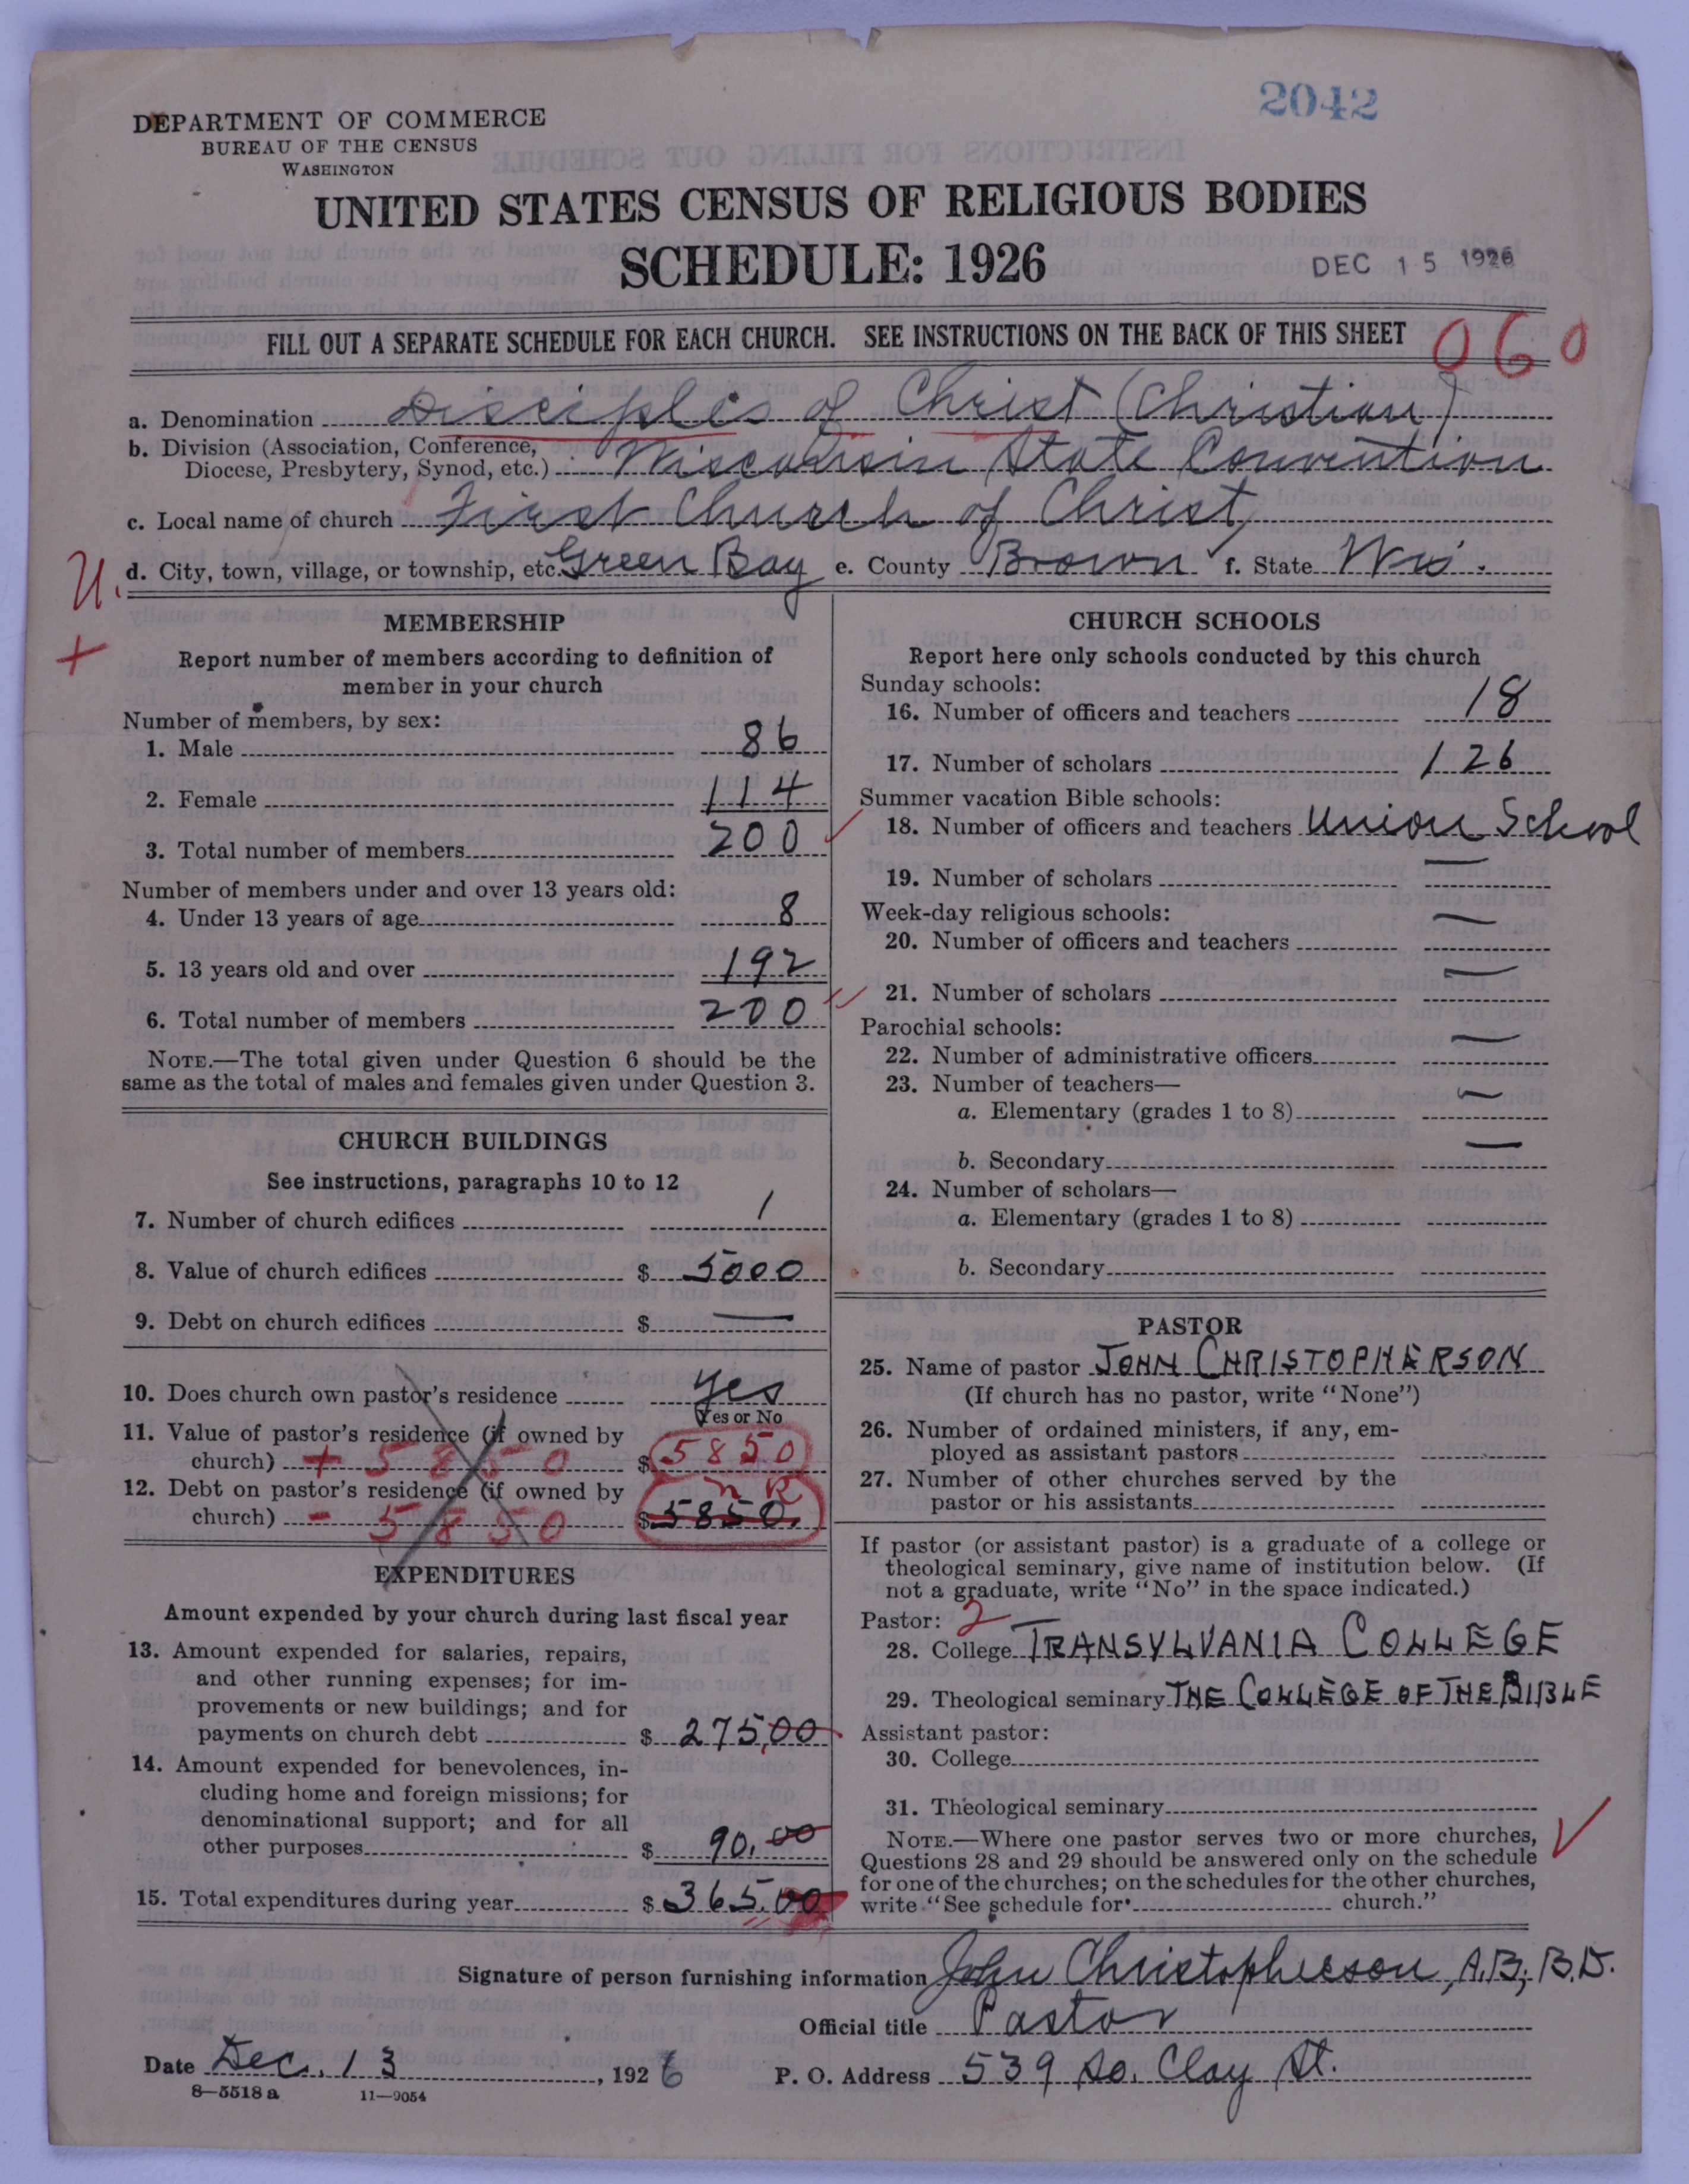 2042
DEPARTMENT OF COMMERCE
BUREAU OF THE CENSUS
WASHINGTON
UNITED STATES CENSUS OF RELIGIOUS BODIES
SCHEDULE: 1926
DEC 15 1926
FILL OUT A SEPARATE SCHEDULE FOR EACH CHURCH. SEE INSTRUCTIONS ON THE BACK OF THIS SHEET
060
a. Denomination Disciples of Christ (Christian)
b. Division (Association, Conference,
Diocese, Presbytery, Synod, etc.) Wisconsin State Convention
c. Local name of church First Church of Christ
d. City, town, village, or township, etc. Green Bay e. County Brown f. State Wis.
U.
+
MEMBERSHIP
Report number of members according to definition of
member in your church
Number of members, by sex:
1. Male 86
2. Female 114
3. Total number of members 200
Number of members under and over 13 years old:
4. Under 13 years of age 8
5. 13 years old and over 192
6. Total number of members 200
NOTE.—The total given under Question 6 should be the
same as the total of males and females given under Question 3.
CHURCH BUILDINGS
See instructions, paragraphs 10 to 12
7. Number of church edifices 1
8. Value of church edifices $ 5000
9. Debt on church edifices $ —
10. Does church own pastor's residence yes
Yes or No
11. Value of pastor's residence (if owned by
church) + 5850 $ 5850
12. Debt on pastor's residence (if owned by
church) - 5850 $ 5850. n R
EXPENDITURES
Amount expended by your church during last fiscal year
13. Amount expended for salaries, repairs,
and other running expenses; for im-
provements or new buildings; and for
payments on church debt $ 275,00
14. Amount expended for benevolences, in-
cluding home and foreign missions; for
denominational support; and for all
other purposes $ 90.00
15. Total expenditures during year $ 365.00
CHURCH SCHOOLS
Report here only schools conducted by this church
Sunday schools:
16. Number of officers and teachers 18
17. Number of scholars 126
Summer vacation Bible schools:
18. Number of officers and teachers Union School
19. Number of scholars —
Week-day religious schools:
20. Number of officers and teachers —
21. Number of scholars —
Parochial schools:
22. Number of administrative officers —
23. Number of teachers—
a. Elementary (grades 1 to 8) —
b. Secondary —
24. Number of scholars—
a. Elementary (grades 1 to 8)
b. Secondary
PASTOR
25. Name of pastor JOHN CHRISTOPHERSON
(If church has no pastor, write "None")
26. Number of ordained ministers, if any, em-
ployed as assistant pastors
27. Number of other churches served by the
pastor or his assistants
If pastor (or assistant pastor) is a graduate of a college or
theological seminary, give name of institution below. (If
not a graduate, write "No" in the space indicated.)
Pastor: 2
28. College TRANSYLVANIA COLLEGE
29. Theological seminary THE COLLEGE OF THE BIBLE
Assistant pastor:
30. College
31. Theological seminary
NOTE.—Where one pastor serves two or more churches,
Questions 28 and 29 should be answered only on the schedule
for one of the churches; on the schedules for the other churches,
write "See schedule for church."
Signature of person furnishing information John Christopherson, A.B; B.D.
Official title Pastor
Date Dec. 13, 1926 P. O. Address 539 So. Clay St.
8—5518 a 11—9054